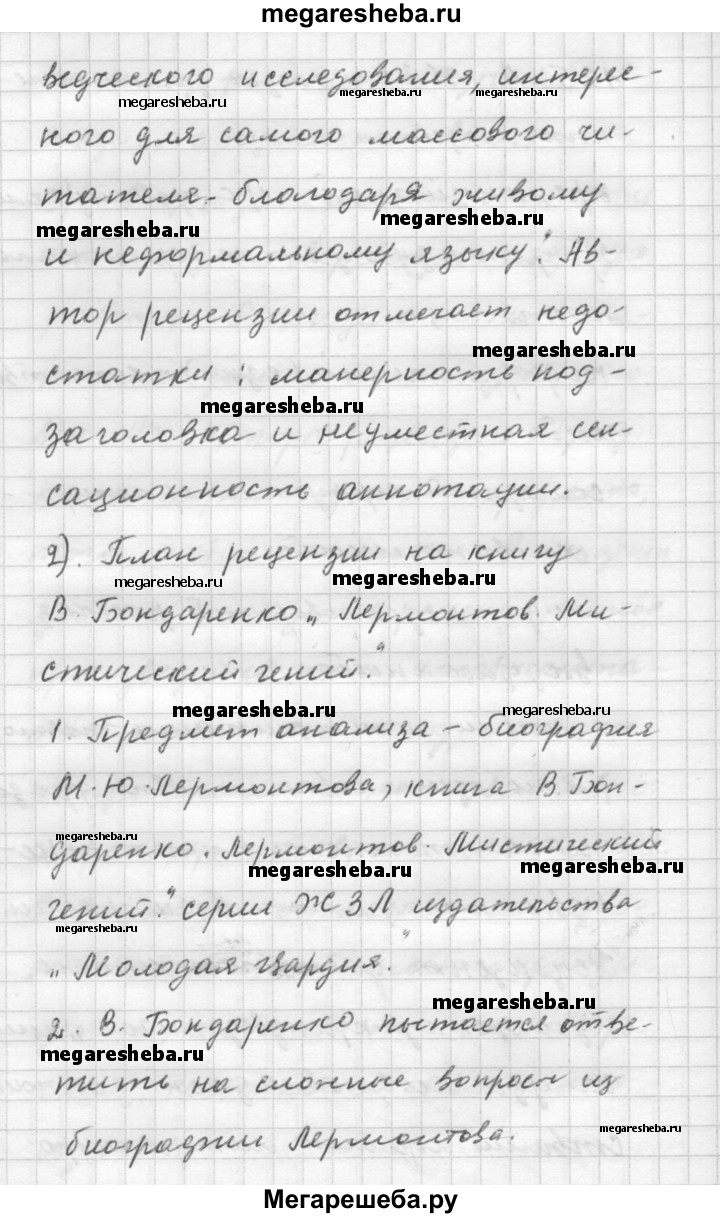 megaresheba.ru
ведческого исследования, интерес-
megaresheba.ru megaresheba.ru megaresheba.ru
ного для самого массового чи-
тателя - благодаря живому
megaresheba.ru megaresheba.ru
и неформальному языку". Ав-
тор рецензии отмечает недо-
megaresheba.ru
статки: манерность под-
megaresheba.ru
заголовка и неуместная сен-
сационность аннотации.
2). План рецензии на книгу
megaresheba.ru megaresheba.ru
В. Бондаренко „Лермонтов. Ми-
стический гений."
megaresheba.ru megaresheba.ru
1. Предмет анализа - биография
М.Ю. Лермонтова, книга В. Бон-
megaresheba.ru
даренко „Лермонтов. Мистический
megaresheba.ru megaresheba.ru
гений." серии ЖЗЛ издательства
megaresheba.ru
„Молодая Гвардия."
megaresheba.ru
2. В. Бондаренко пытается отве-
megaresheba.ru
тить на сложные вопросы из
megaresheba.ru
биографии Лермонтова.
Мегарешеба.ру